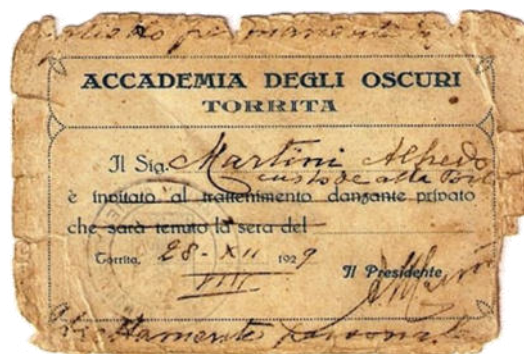 ACCADEMIA DEGLI OSCURI
TORRITA
Il Sig. Martini Alfredo
custode alla
è invitato al trattenimento danzante privato
che sarà tenuto la sera del
Torrita, 28-XII 1929
VIII
Il Presidente
personale